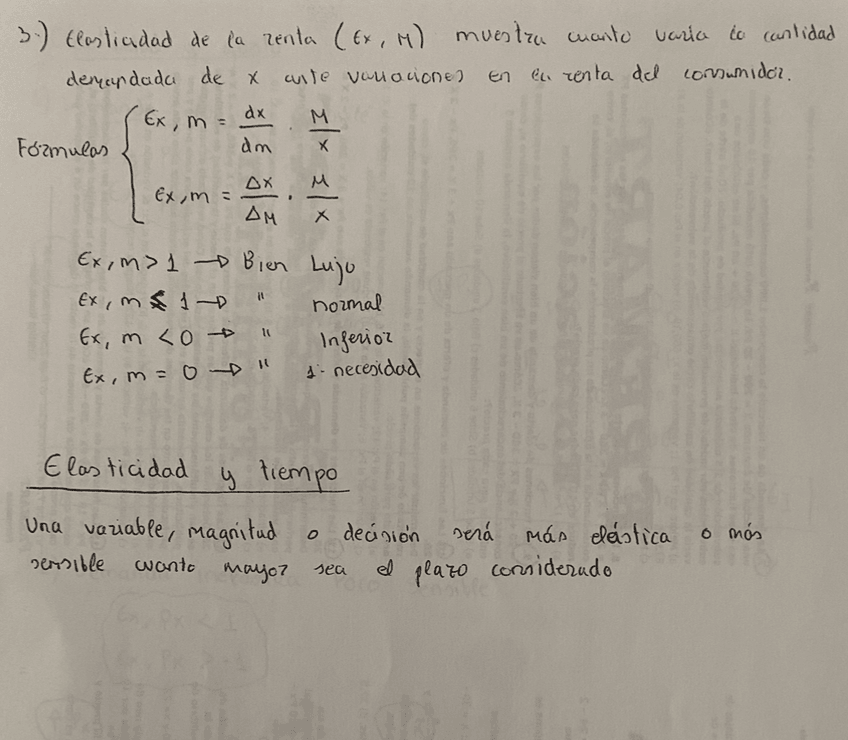 3·) Elasticidad de la renta (Ex, M) muestra cuanto varía la cantidad
demandada de x ante variaciones en la renta del consumidor.
Fórmulas
Ex, m = dx/dm · M/x
Ex, m = Δx/ΔM · M/x
Ex, m > 1 → Bien Lujo
Ex, m ≤ 1 → " normal
Ex, m < 0 → " Inferior
Ex, m = 0 → " 1· necesidad
Elasticidad y tiempo
Una variable, magnitud o decisión será más elástica o más
sensible cuanto mayor sea el plazo considerado